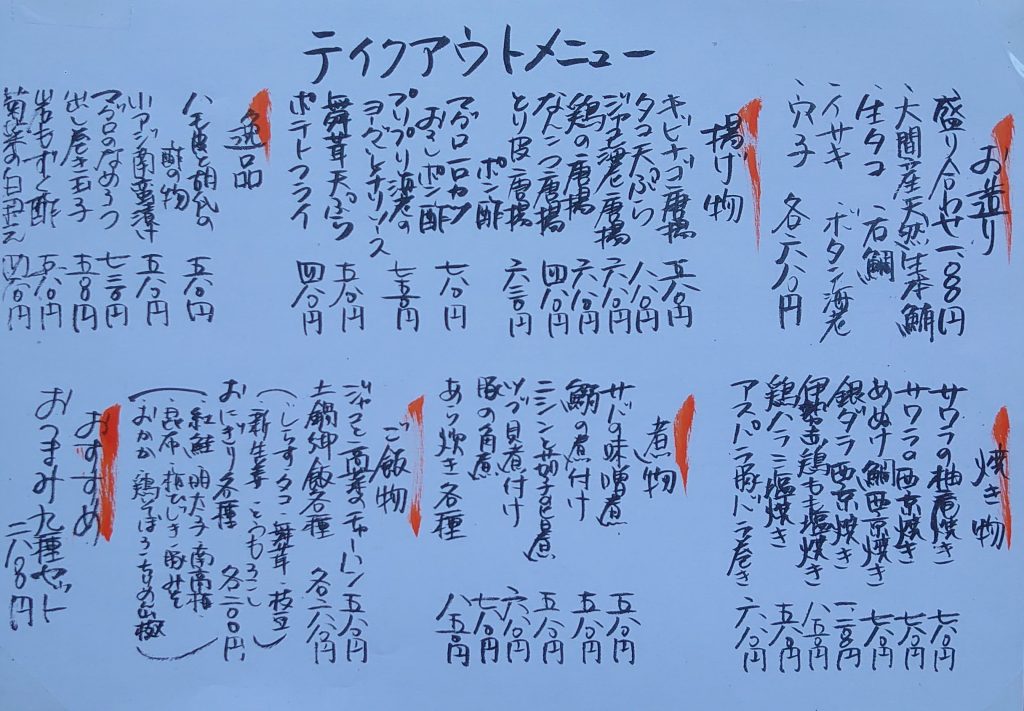 ティクアウトメニュー
お造り
盛り合わせ 一八〇〇円
・大間産天然生本鮪
・生タコ ・石鯛
・イサキ ・ボタン海老
・穴子 各六八〇円
揚げ物
キビナゴ唐揚 五八〇円
タコ天ぷら 八八〇円
ジャコ海老唐揚 六八〇円
鶏の唐揚 六八〇円
なんこつ唐揚 四八〇円
とり皮唐揚ポン酢 六三〇円
マグロ一口カツ
おろしポン酢 七八〇円
プリプリ海老の
ヨーグルトチリソース 七五〇円
舞茸天ぷら 五八〇円
ポテトフライ 四八〇円
逸品
酢の物 五八〇円
小アジ南蛮漬 五八〇円
マグロのなめろう 七三〇円
出し巻き玉子 五五〇円
岩もずく酢 五八〇円
菊菜の白和え 四八〇円
焼き物
サワラの柚庵焼き 七八〇円
サワラの西京焼き 七八〇円
めぬけ鯛西京焼き 七八〇円
銀ダラ西京焼き
伊勢赤鶏もも塩焼き 八五〇円
鶏ハラミ塩焼き 五八〇円
アスパラ豚バラ巻き 六八〇円
煮物
サバの味噌煮 五八〇円
鰯の煮付け 五八〇円
ニシンと茄子旨煮 五八〇円
ツブ貝煮付け 六八〇円
豚の角煮 七八〇円
あら炊き各種 八五〇円
ご飯物
ジャコと高菜のチャーハン 五八〇円
土鍋御飯各種 各一六八〇円
(・しらすタコ・舞茸・枝豆
・新生姜・とうもろこし)
おにぎり各種 各二〇〇円
(・紅鮭・明太子・南高梅
・昆布・梅ひじき・豚みそ
・おかか・鶏そぼろ・ちりめん山椒)
おすすめ
おつまみ九種セット
二八〇〇円